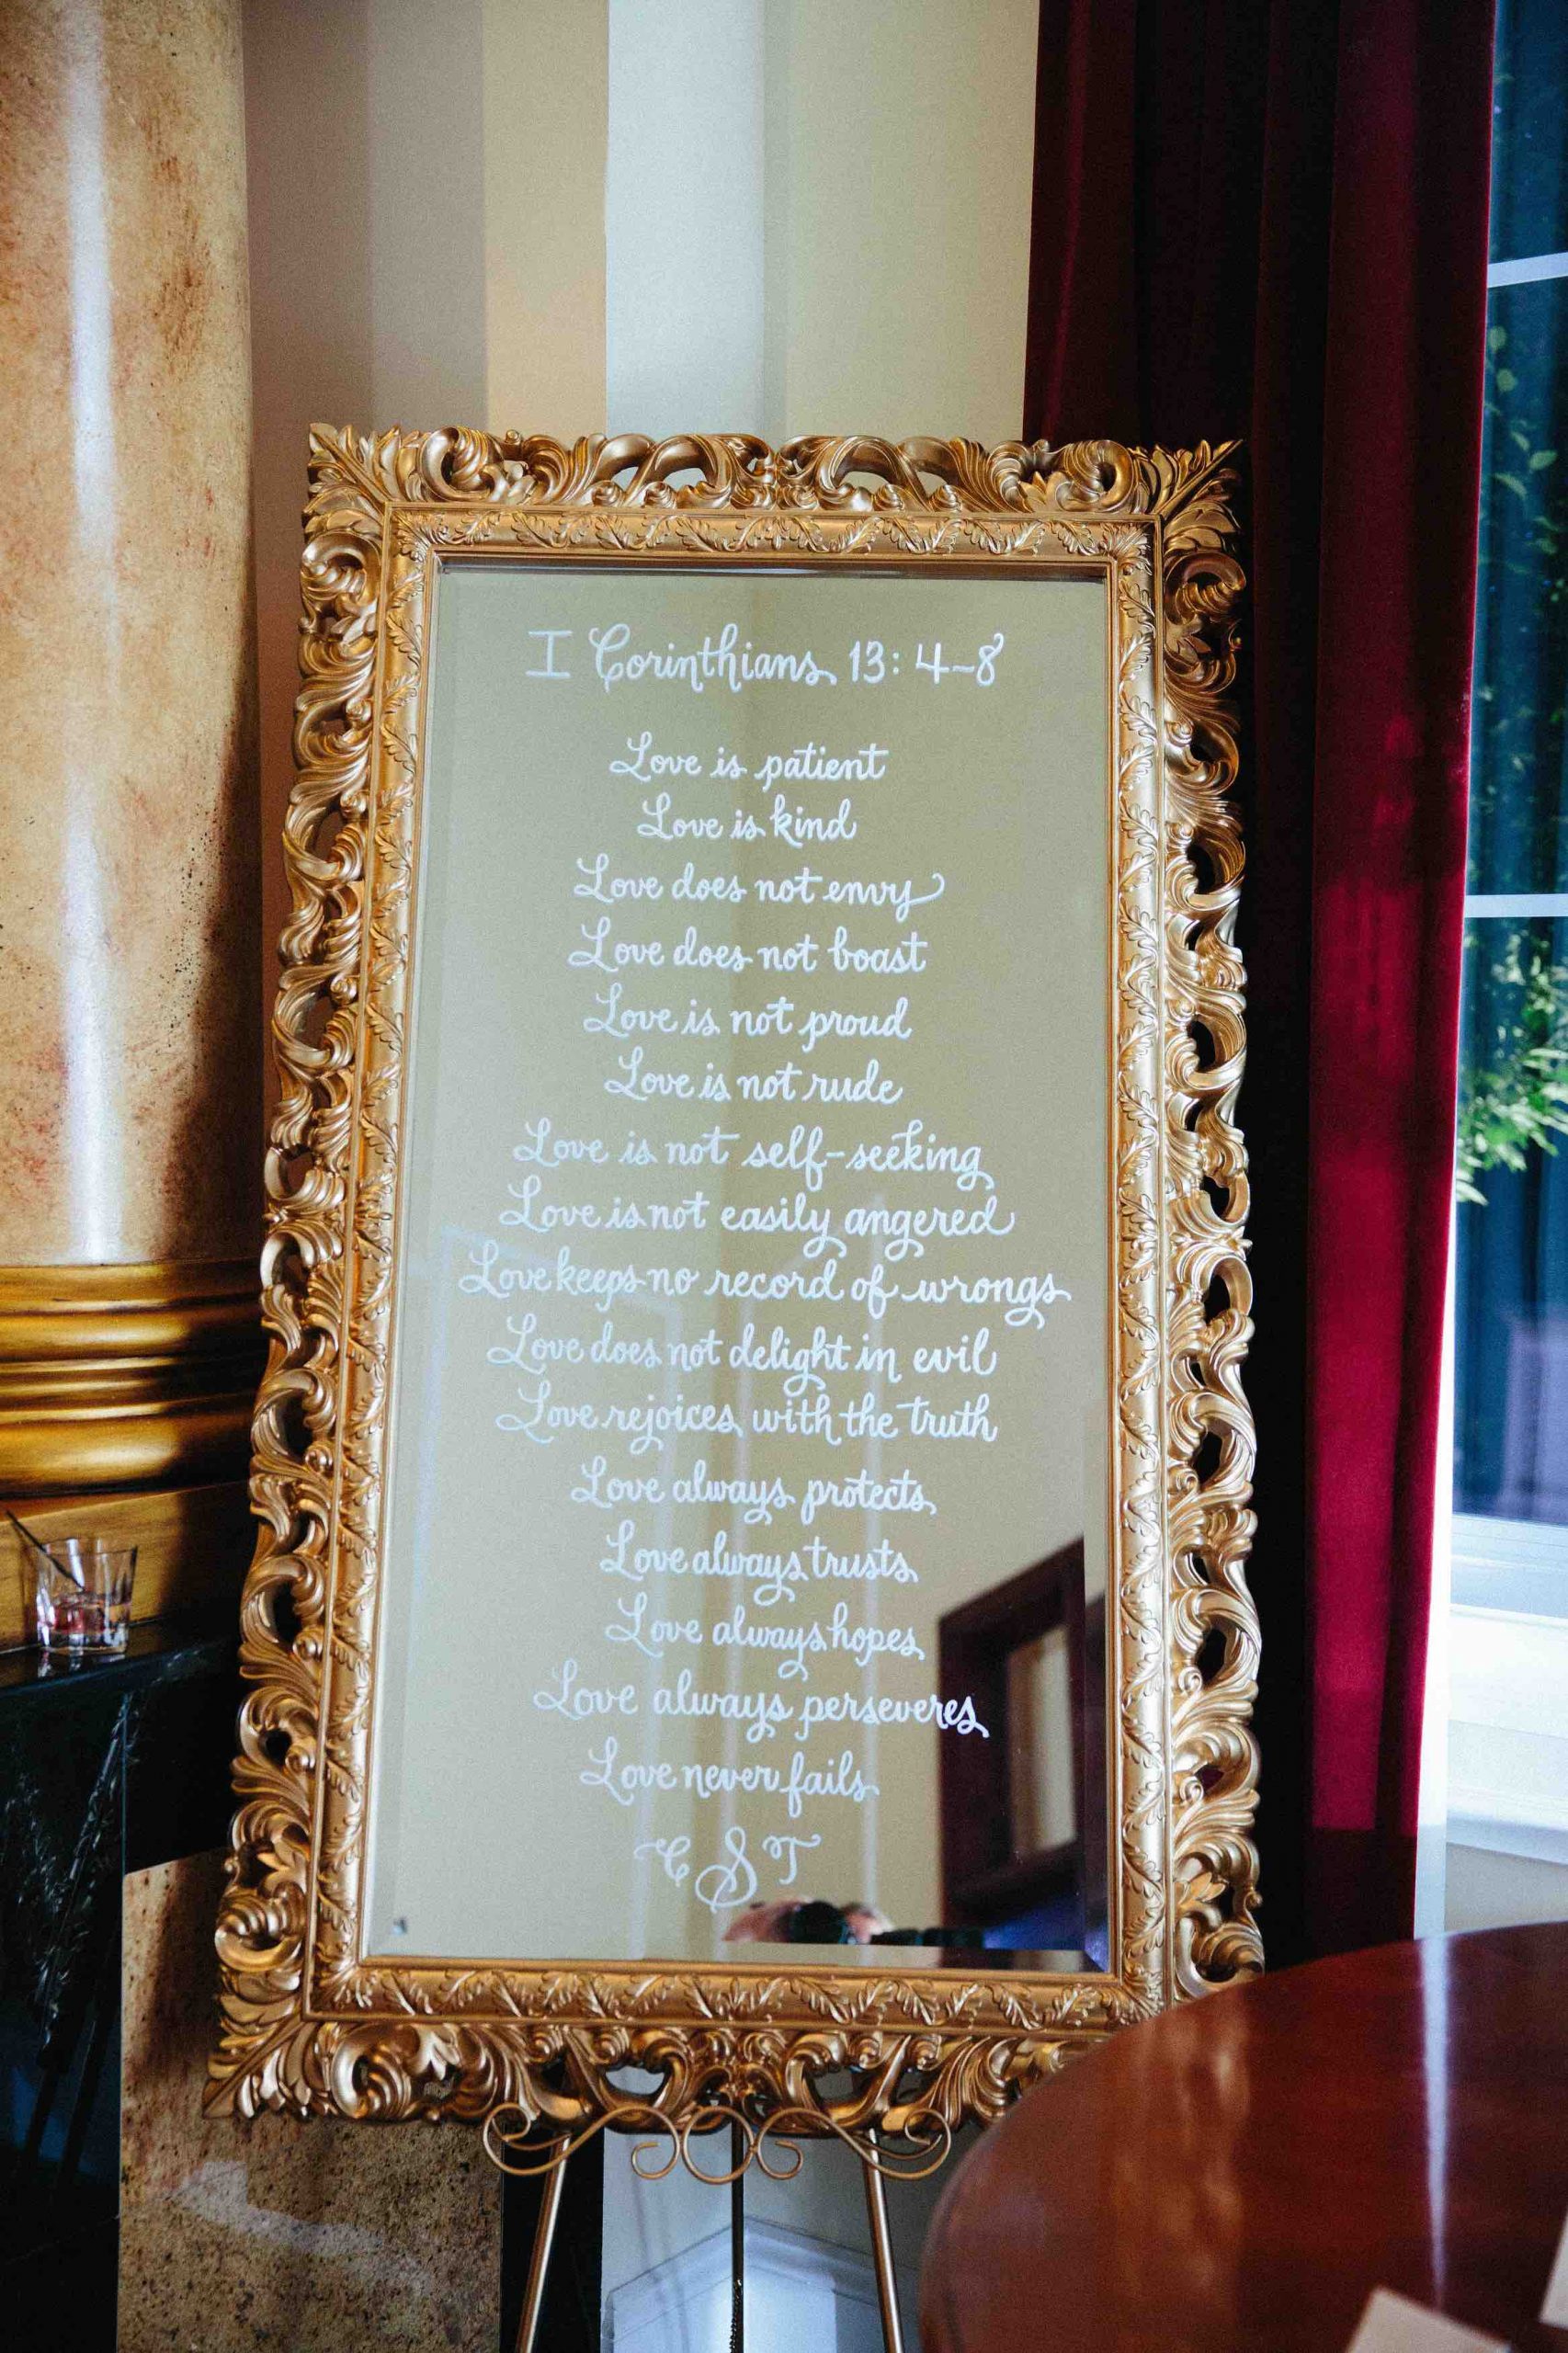 I Corinthians 13:4-8
Love is patient
Love is kind
Love does not envy
Love does not boast
Love is not proud
Love is not rude
Love is not self-seeking
Love is not easily angered
Love keeps no record of wrongs
Love does not delight in evil
Love rejoices with the truth
Love always protects
Love always trusts
Love always hopes
Love always perseveres
Love never fails
C S T